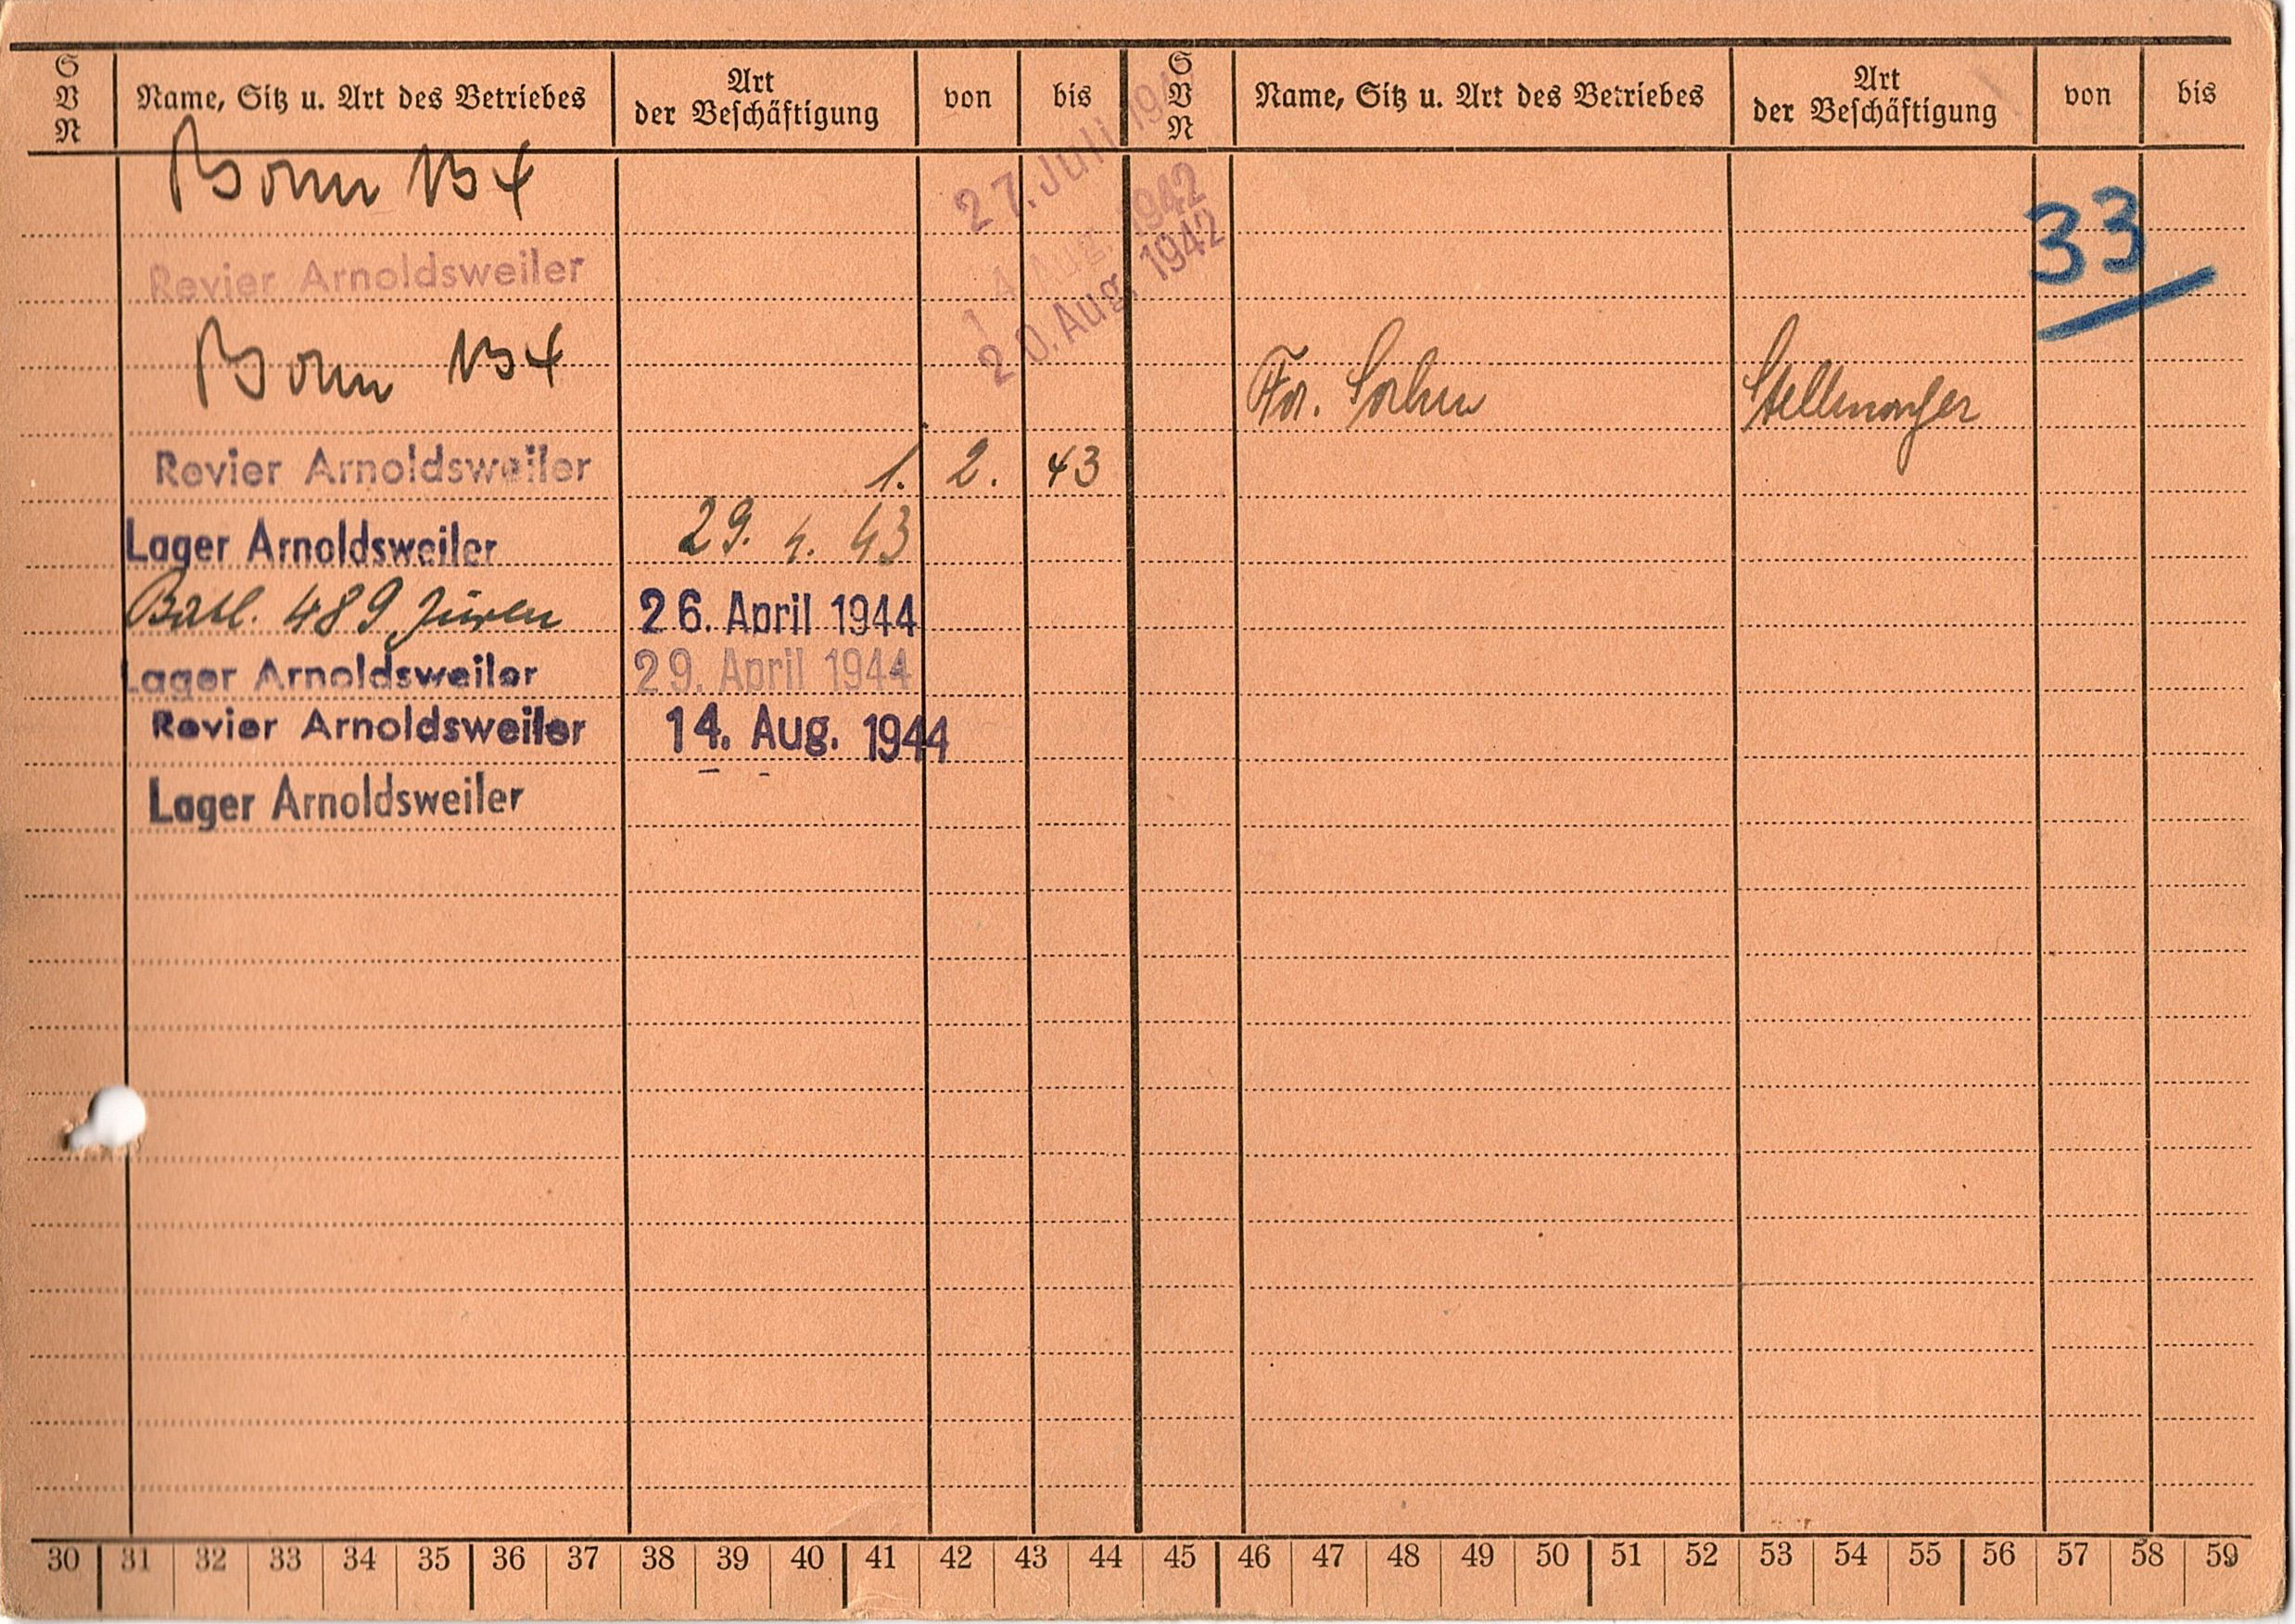 S V N Name, Sitz u. Art des Betriebes Art der Beschäftigung von bis S V N Name, Sitz u. Art des Betriebes Art der Beschäftigung von bis
Bonn B4 27. Juli
33
Revier Arnoldsweiler 14 Aug. 1942
Bonn B4 20. Aug. 1942
Fa. Stellmacher
Revier Arnoldsweiler 1. 2. 43
Lager Arnoldsweiler 29. 4. 43
Batl. 489 Düren 26. April 1944
Lager Arnoldsweiler 29. April 1944
Revier Arnoldsweiler 14. Aug. 1944
Lager Arnoldsweiler
30 31 32 33 34 35 36 37 38 39 40 41 42 43 44 45 46 47 48 49 50 51 52 53 54 55 56 57 58 59